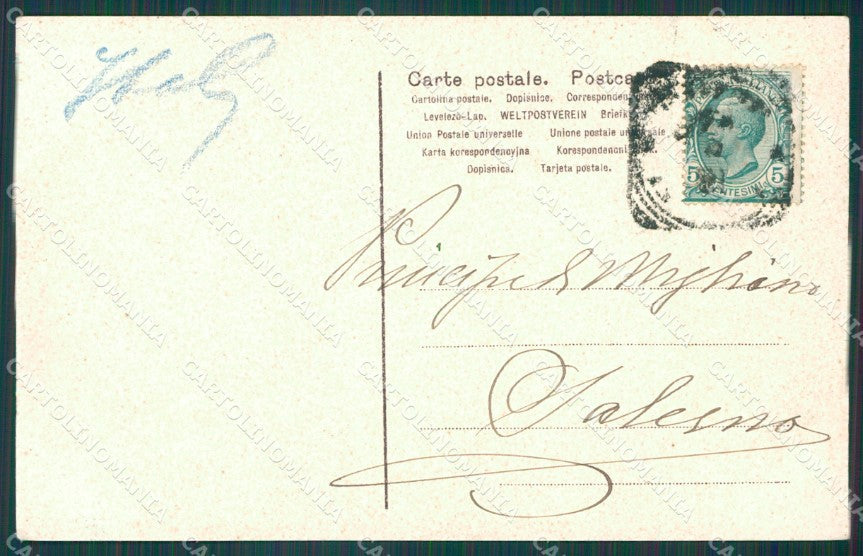 Italy
Carte postale. Postca
Cartolina postale. Dopisnice. Corresponden
Levelező-Lap. WELTPOSTVEREIN Briefk
Union Postale universelle Unione postale universale
Karta korespondencyjna Korespondenční
Dopisnica. Tarjeta postale.
5 CENTESIMI 5
Principe di Migliano
Salerno
CARTOLINOMANIA